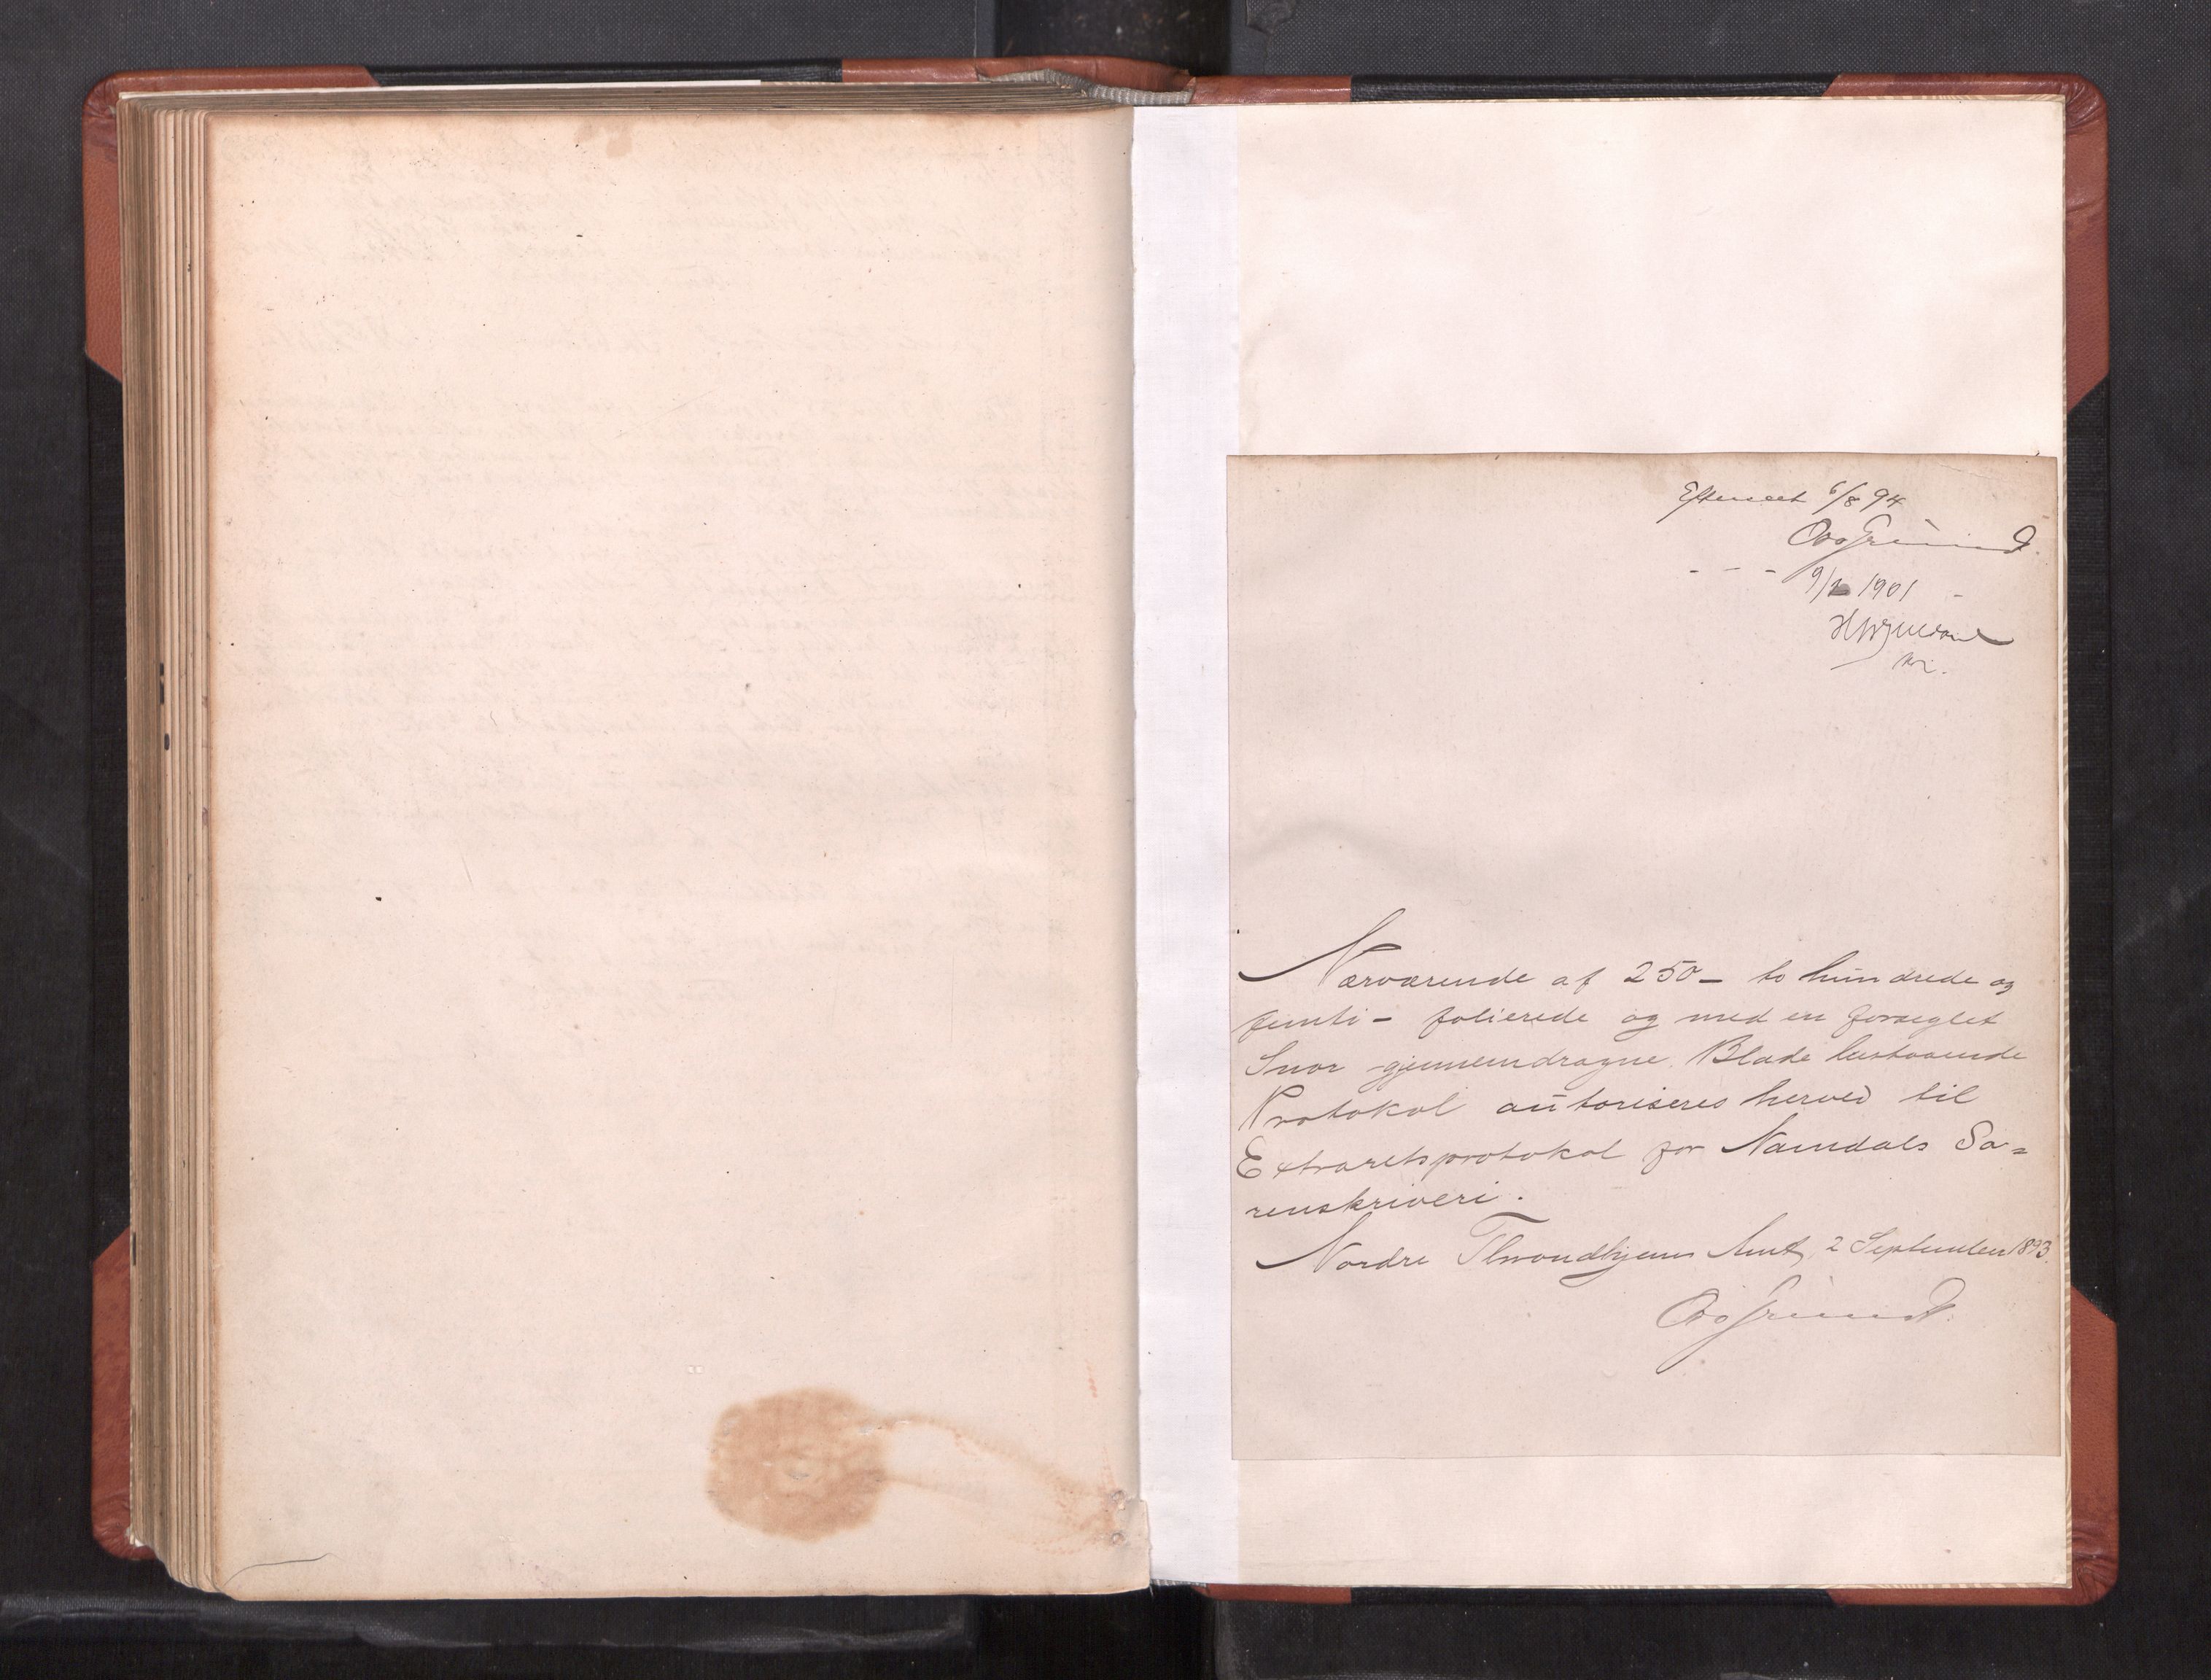 Efterseet 6/8 94
- - - 9/ 1901
Nærværende af 250 - to hundrede og
femti - folierede og med en forseglet
Snor gjennemdragne Blade bestaaende
Protokol autoriseres herved til
Extraretsprotokol for Namdals So=
renskriveri.
Nordre Throndhjems Amt, 2 September 1893.